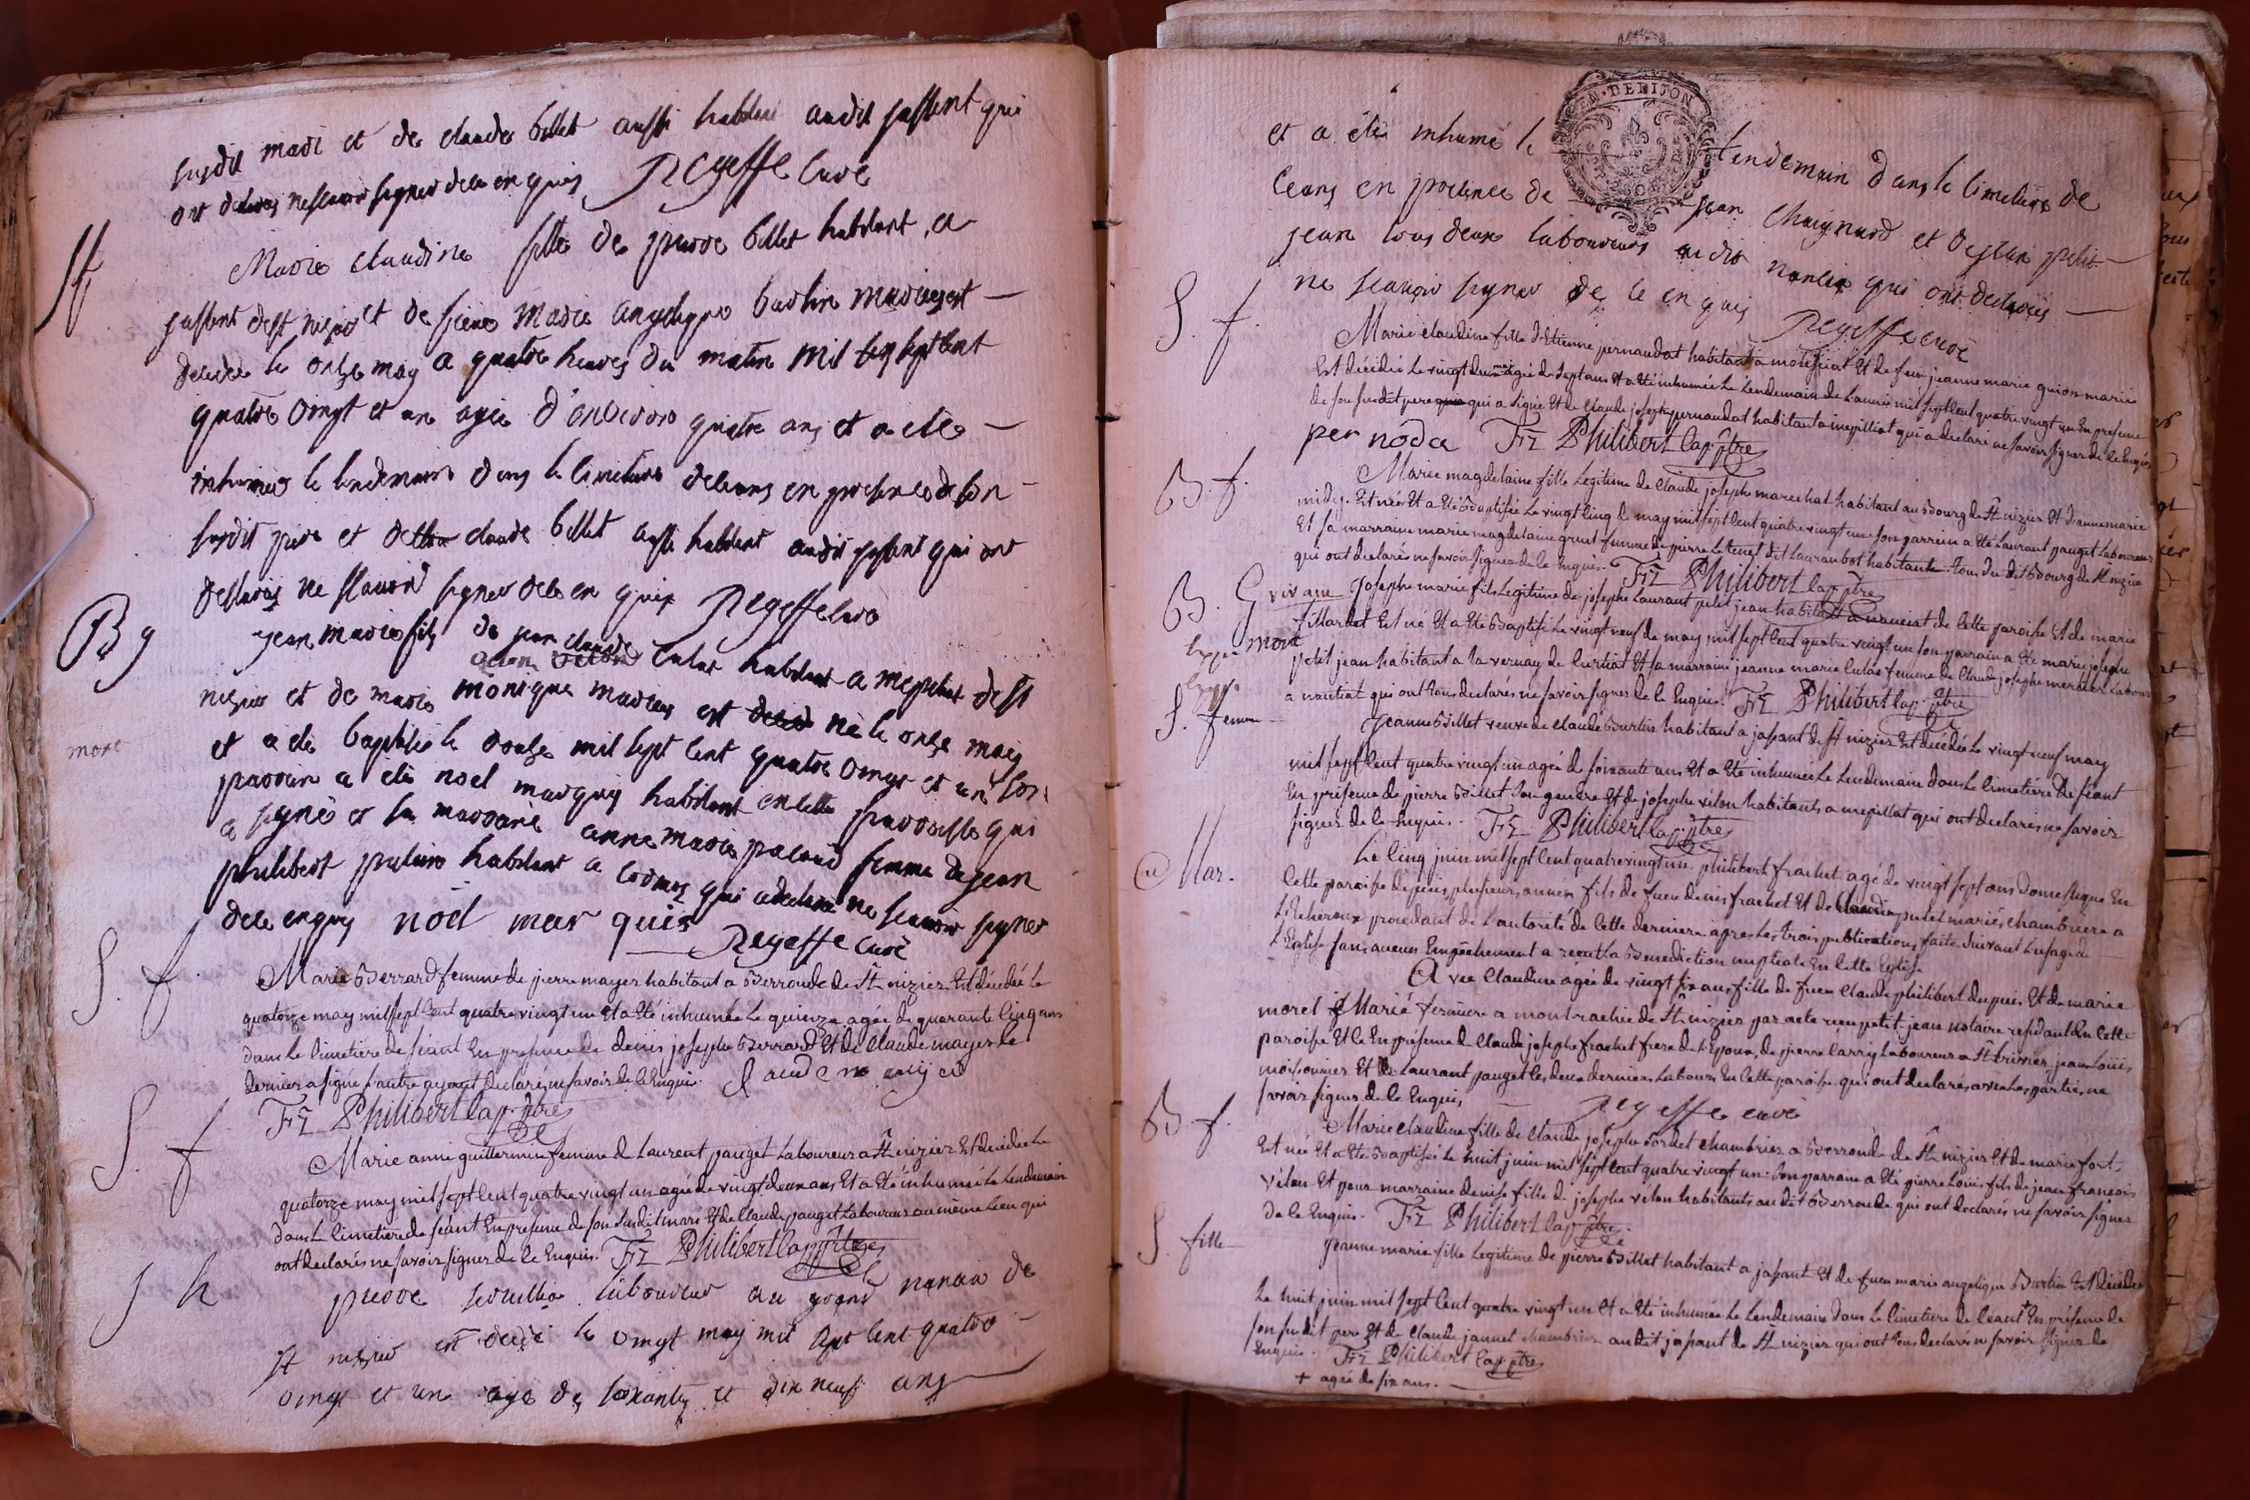 susdit mari et de claude billet aussi habitant audit jassent qui
ont declarés ne scavoir signer de ce enquis Regeffe Curé
Sf
Marie claudine fille de pierre billet habitant a
jassent de st nizier et de feüe Marie angelique burtin mariés est
decedée le onze may a quatre heures du matin mil sept cent
quatre vingt et un agée d'environ quatre ans et a été
inhumée le lendemain dans le cimetiere de ceans en presence de son
susdit pere et de claude billet aussi habitant audit jassent qui ont
declarés ne scavoir signer de ce enquis Regeffe Curé
B g
jean marie fils de jean claude habitant a mepillat de st
nizier et de marie monique mariés est né le onze may
mort
et a été baptisé le douze mil sept cent quatre vingt et un son
parrain a été noel marquis habitant en cette parroisse qui
a signé et sa marraine anne marie pacaud femme de jean
philibert habitant a cormoz qui a declaré ne scavoir signer
de ce enquis noël mar quis Regeffe curé
S. f.
Marie Berrard femme de pierre mayer habitant a Berroude de St. nizier Est décédée le
quatorze may mil sept Cent quatre vingt un Et a Eté inhumée Le quinze agée de quarante Cinq ans
dans Le Cimetiere de séant En presence de denis joseph Berrard Et de Claude mayer le
dernier a signé l'autre ayant declaré ne savoir de ce Enquis.
Frz Philibert Cap. ptre
S. f
Marie anne guillermin femme de Laurent pauget Laboureur a St. nizier Est décédée Le
quatorze may mil sept Cent quatre vingt un agée de vingt deux ans Et a Eté inhumée Le Lendemain
dans Le Cimetiere de séant En presence de son susdit mari Et de Claude pauget Laboureur au même Lieu qui
ont declarés ne savoir signer de ce Enquis. Frz Philibert Cap ptre
S h
pierre laboureur au grand nancia de
St nizier est decedé le vingt may mil sept cent quatre
vingt et un agé de soixante et dix neuf ans
EN·DE DIJON
et a été inhumé le lendemain dans le cimetiere de
ceans en presence de jean Chaignard et de jean petit
jean tous deux laboureurs audit nancia qui ont declarés
ne scavoir signer de ce enquis Regeffe curé
S. f.
Marie claudine fille d'Etienne pernaudat habitant a montfciat Et de feue jeanne marie guion mariés
Est décédée Le vingt deux may agée de sept ans Et a Eté inhumée Le Lendemain de l'année mil sept Cent quatre vingt un En presence
de son susdit pere qui a signé Et de Claude joseph pernaudat habitant a mepillat qui a declaré ne savoir signer de ce Enquis
per noda Frz Philibert Cap. ptre
B. f.
Marie magdelaine fille Legitime de Claude joseph marechal habitant au Bourg de St nizier Et d'anne marie
midey. Est née Et a Eté Baptisée Le vingt Cinq de may mil sept Cent quatre vingt un son parrein a Eté Laurant pauget Laboureur
Et sa marraine marie magdelaine femme de pierre habitants tous du dit Bourg de St nizier
qui ont declarés ne savoir signer de ce Enquis. Frz Philibert Cap. ptre
B. G
vivant
mort
Joseph marie fils Legitime de joseph Laurant petit jean habitant a nanciat de Cette paroisse Et de marie
fillardet Est né Et a Eté Baptisé Le vingt neuf de may mil sept Cent quatre vingt un son parrain a Eté marie joseph
petit jean habitant a La vernay de Curtiat Et sa marraine jeanne marie femme de Claude joseph
a nantiat qui ont tous declarés ne savoir signer de ce Enquis. Frz Philibert Cap. ptre
S. femme
Jeanne Billet veuve de Claude Burtin habitant a jassant de St nizier Est décédée Le vingt neuf may
mil sept Cent quatre vingt un agée de soixante ans Et a Eté inhumée Le Lendemain dans Le Cimetiére De séant
En presence de pierre Billet son gendre Et de joseph vélon habitants a mepillat qui ont declarés ne savoir
signer de ce Enquis. Frz Philibert Cap. ptre
Mar.
Le Cinq juin mil sept Cent quatre vingt un philibert frachet agé de vingt sept ans Domestique En
Cette paroisse depuis plusieurs années fils de feu denis frachet Et de Claudine mariés, chambriere a
procedant de L'autorité de Cette derniere apres Les trois publications faites suivant L'usage de
L'Eglise sans aucun Empêchement a recu La Benediction nuptiale En Cette Eglise
Avec Claudine agée de vingt six ans fille de feu Claude philibert dupuis Et de marie
morel Mariés fermiere a montrachie de St nizier par acte recu petit jean notaire residant En Cette
paroisse Et Ce En presence de Claude joseph frachet frere de L'Epoux, de pierre Carry Laboureur a St. trivier, jean Louis
moissonnier Et de Laurant pauget les deux derniers Laboureurs En Cette paroisse qui ont declarés avec Les parties, ne
savoir signer de ce Enquis Regeffe curé
B f.
Marie claudine fille de Claude joseph Sordet chambrier a Berroude de St. nizier Et de marie fort
Est née Et a Eté Baptisée le huit juin mil sept cent quatre vingt un. son parrain a Eté pierre Louis fils de jean francois
vélon Et pour marraine denise fille de joseph vélon habitants audit Berroude qui ont declarés ne savoir signer
de ce Enquis. Frz Philibert Cap. ptre
S. fille
Jeanne marie fille Legitime de pierre Billet habitant a jassant Et de feue marie angelique Burtin Est décédée
Le huit juin mil sept Cent quatre vingt un Et a Eté inhumée Le Lendemain dans Le Cimetiere de Céant En présence de
son susdit pere Et de Claude jannet chambrier audit jassant de St nizier qui ont tous declarés ne savoir signer de
Enquis. Frz Philibert Cap ptre
+ agée de six ans.